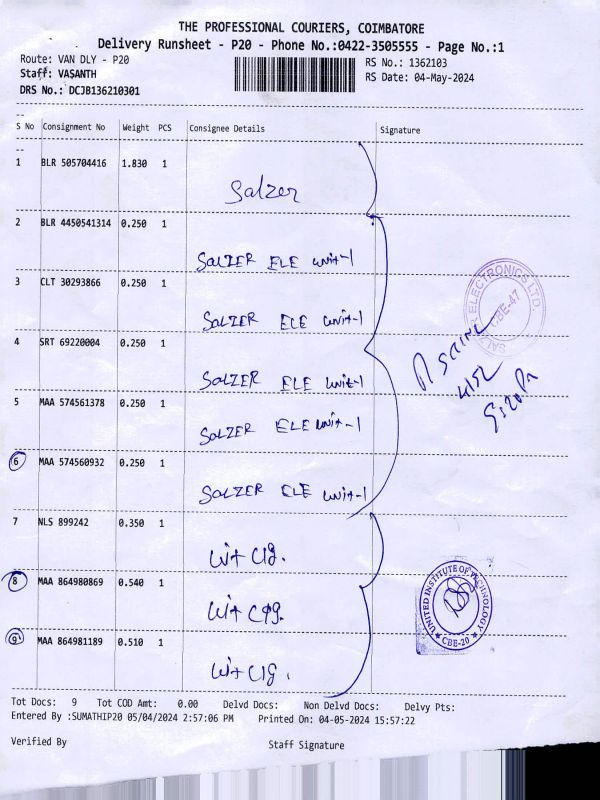 THE PROFESSIONAL COURIERS, COIMBATORE
Delivery Runsheet - P20 - Phone No.:0422-3505555 - Page No.:1
Route: VAN DLY - P20
RS No.: 1362103
Staff: VASANTH
RS Date: 04-May-2024
DRS No.: DCJB136210301
S No Consignment No Weight PCS Consignee Details Signature
1 BLR 505704416 1.830 1
Salzer
2 BLR 4450541314 0.250 1
SALZER ELE unit-1
3 CLT 30293866 0.250 1
SALZER ELE unit-1
4 SRT 69220004 0.250 1
SALZER ELE unit-1
5 MAA 574561378 0.250 1
SALZER ELE unit-1
6 MAA 574560932 0.250 1
SALZER ELE unit-1
SALZER ELECTRONICS LTD.
CBE-47
7 NLS 899242 0.350 1
8 MAA 864980869 0.540 1
9 MAA 864981189 0.510 1
UNITED INSTITUTE OF TECHNOLOGY
CBE-20
Tot Docs: 9 Tot COD Amt: 0.00 Delvd Docs: Non Delvd Docs: Delvy Pts:
Entered By :SUMATHIP20 05/04/2024 2:57:06 PM Printed On: 04-05-2024 15:57:22
Verified By Staff Signature